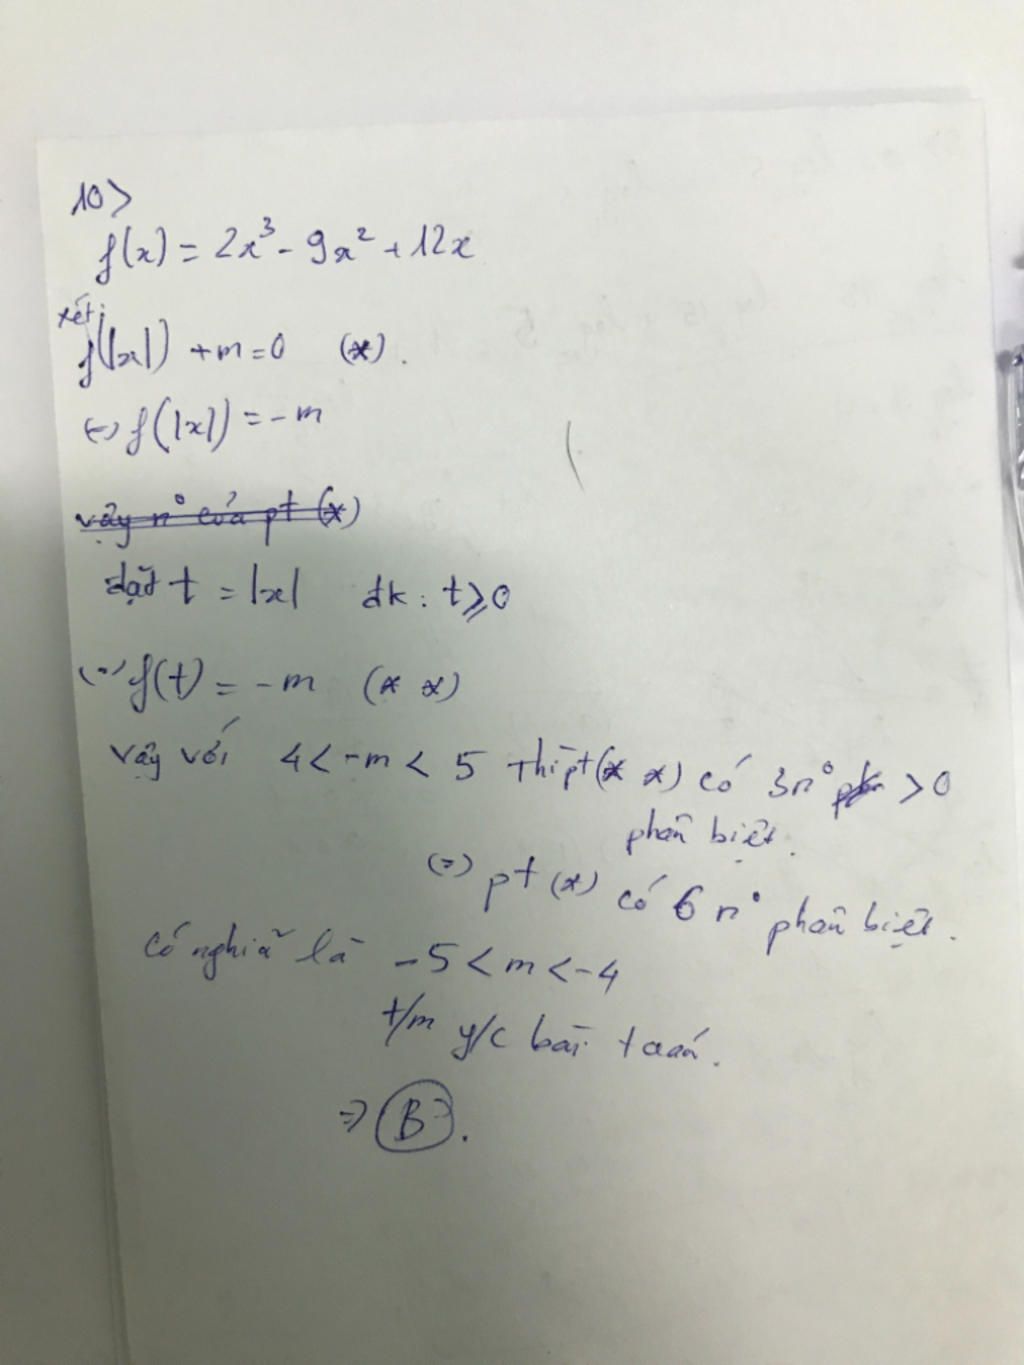 10>
f(x) = 2x³ - 9x² + 12x
xét:
f(|x|) + m = 0 (*).
<=> f(|x|) = - m
vậy n° của pt (*)
đặt t = |x| đk : t ⩾ 0
<=> f(t) = - m (* *)
vậy với 4 < -m < 5 thì pt (* *) có 3 n° > 0
phân biệt.
<=> pt (*) có 6 n° phân biệt.
có nghĩa là - 5 < m < - 4
t/m y/c bài toán.
=> B.